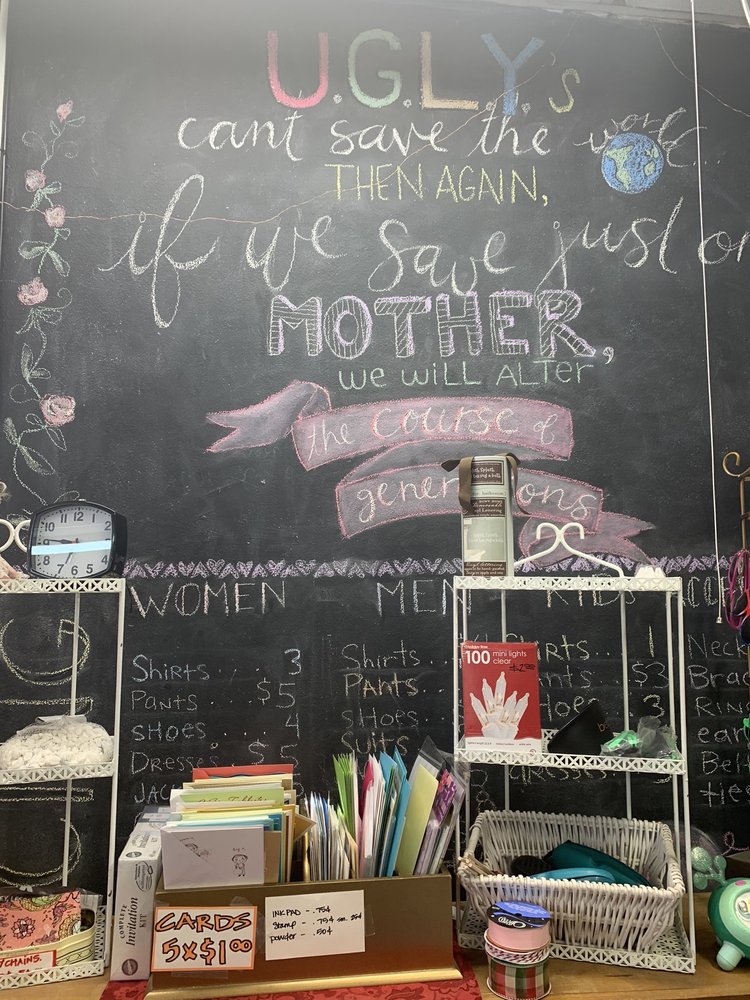 U.G.L.Y.s
cant save the world...
THEN AGAIN,
if we save just on
MOTHER,
we will ALTER
the course of
gener ons
WOMEN
Shirts . . 3
Pants . . . $5
SHOES . 4
Dresses . $5
JAC
MEN
Shirts . . .
Pants . . .
SHOES . .
Suits
KIDS
Shirts . . 1
nts $3
oe 3
DRESSES . . .
CCE
Neck
Brac
Rin
ear
Bel
100 mini lights
clear
$2.00
COMPLETE
Invitation
KIT
CARDS
5x$1.00
INK PAD - .75¢
Stamp - .75¢ sm. 25¢
powder - .50¢
CHAINS.